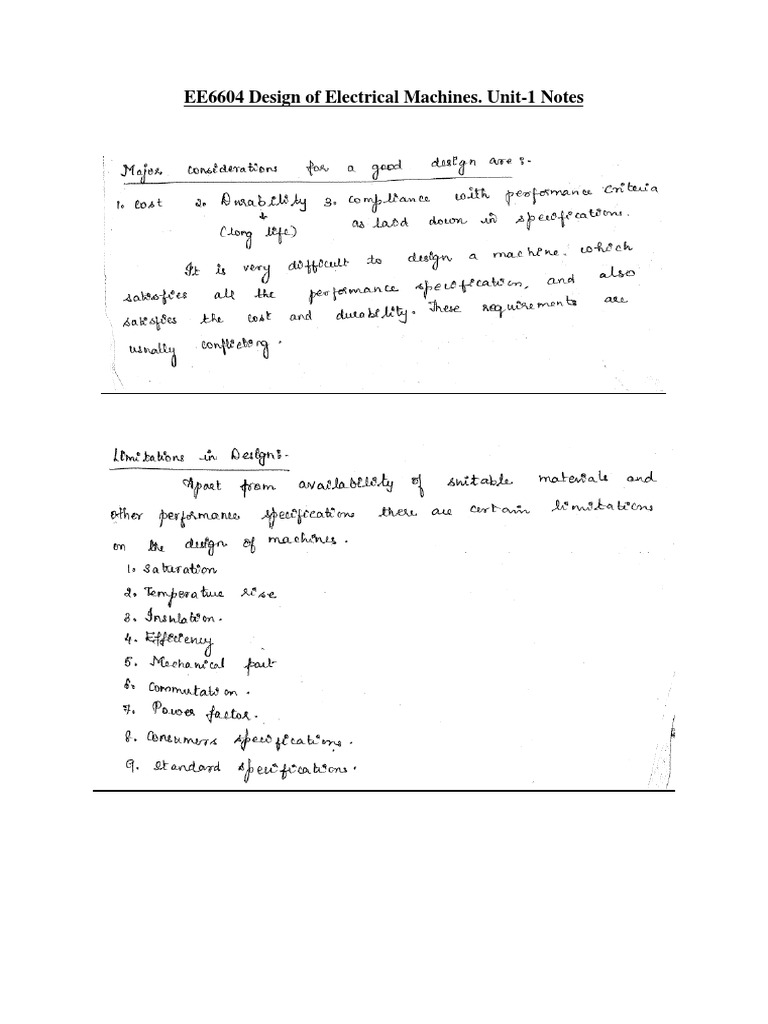 EE6604 Design of Electrical Machines. Unit-1 Notes
Major considerations for a good design are :-
1. cost 2. Durability 3. compliance with performance criteria
(long life) as laid down in specifications.
It is very difficult to design a machine. which
satisfies all the performance specification, and also
satisfies the cost and durability. These requirements are
usually conflicting.
Limitations in Design:-
Apart from availability of suitable materials and
other performance specifications there are certain limitations
on the design of machines.
1. saturation
2. Temperature rise
3. Insulation.
4. Efficiency
5. Mechanical part
6. Commutation.
7. Power factor.
8. Consumers specifications.
9. standard specifications.